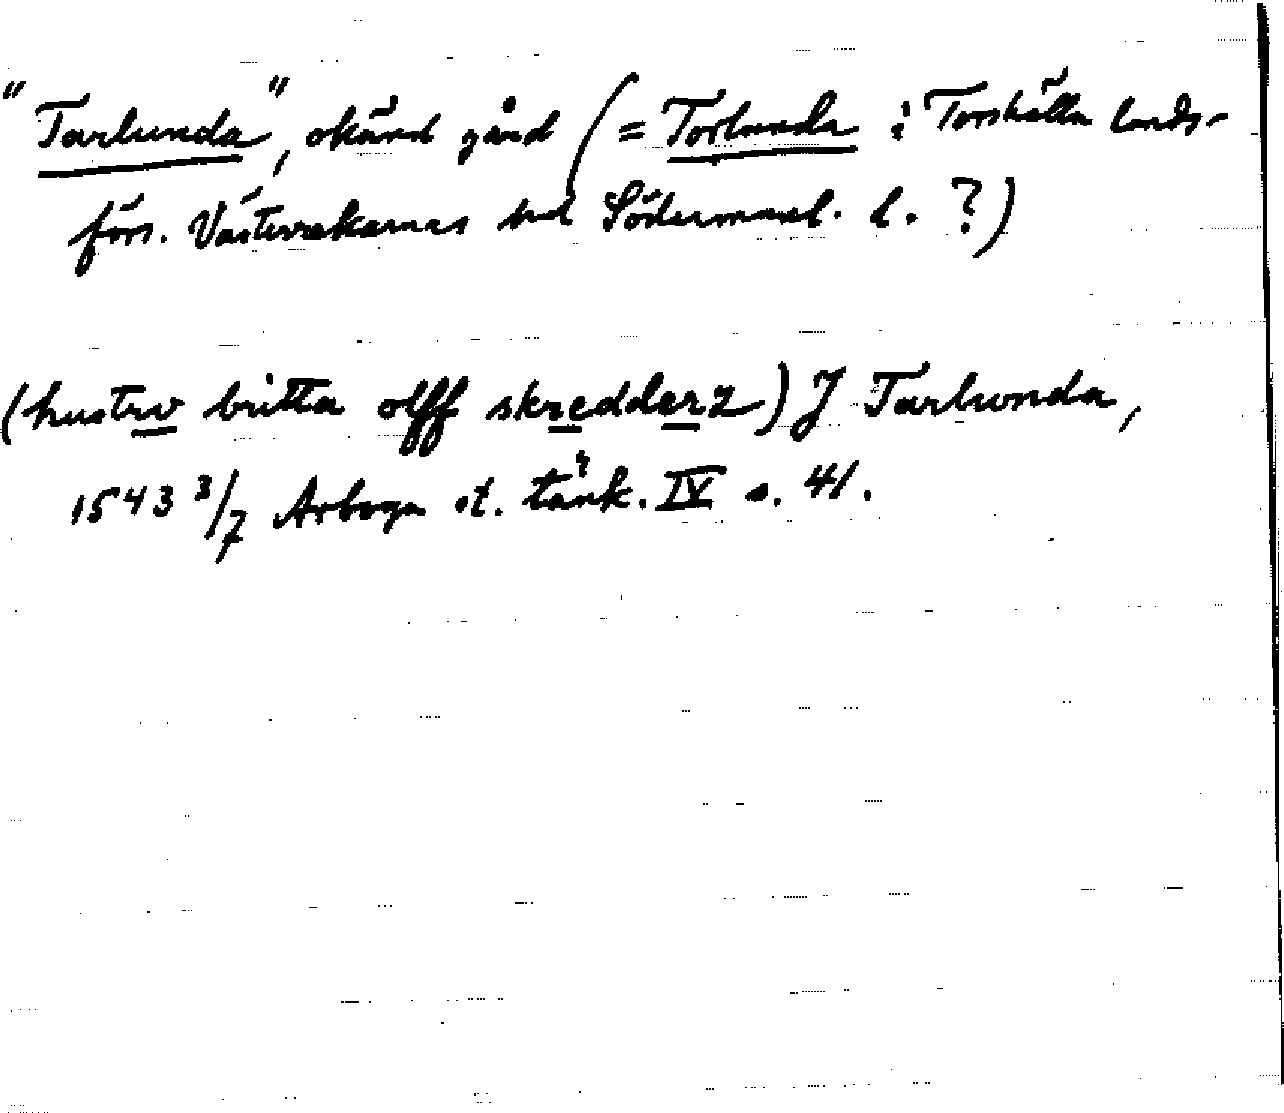 "Tarlunda", okänd gård (= Torlunda i Torshälla lands-
förs. Västerrekarnas hd Södermanl. l. ?)
(hustrv britta olff skredderz) J Tarlunda,
1543 3/7 Arboga st. tänk. IV s. 41.